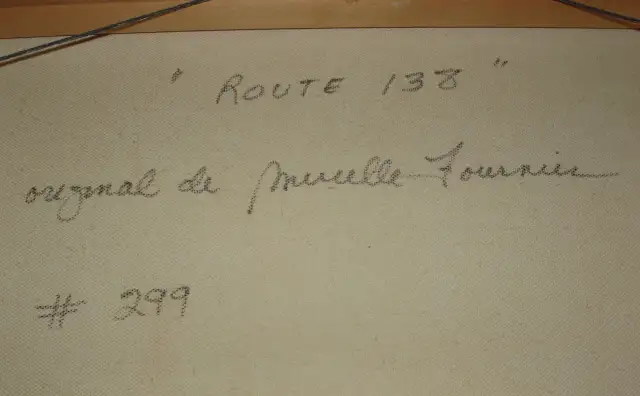 " ROUTE 138 "
original de Mireille Fournier
# 299